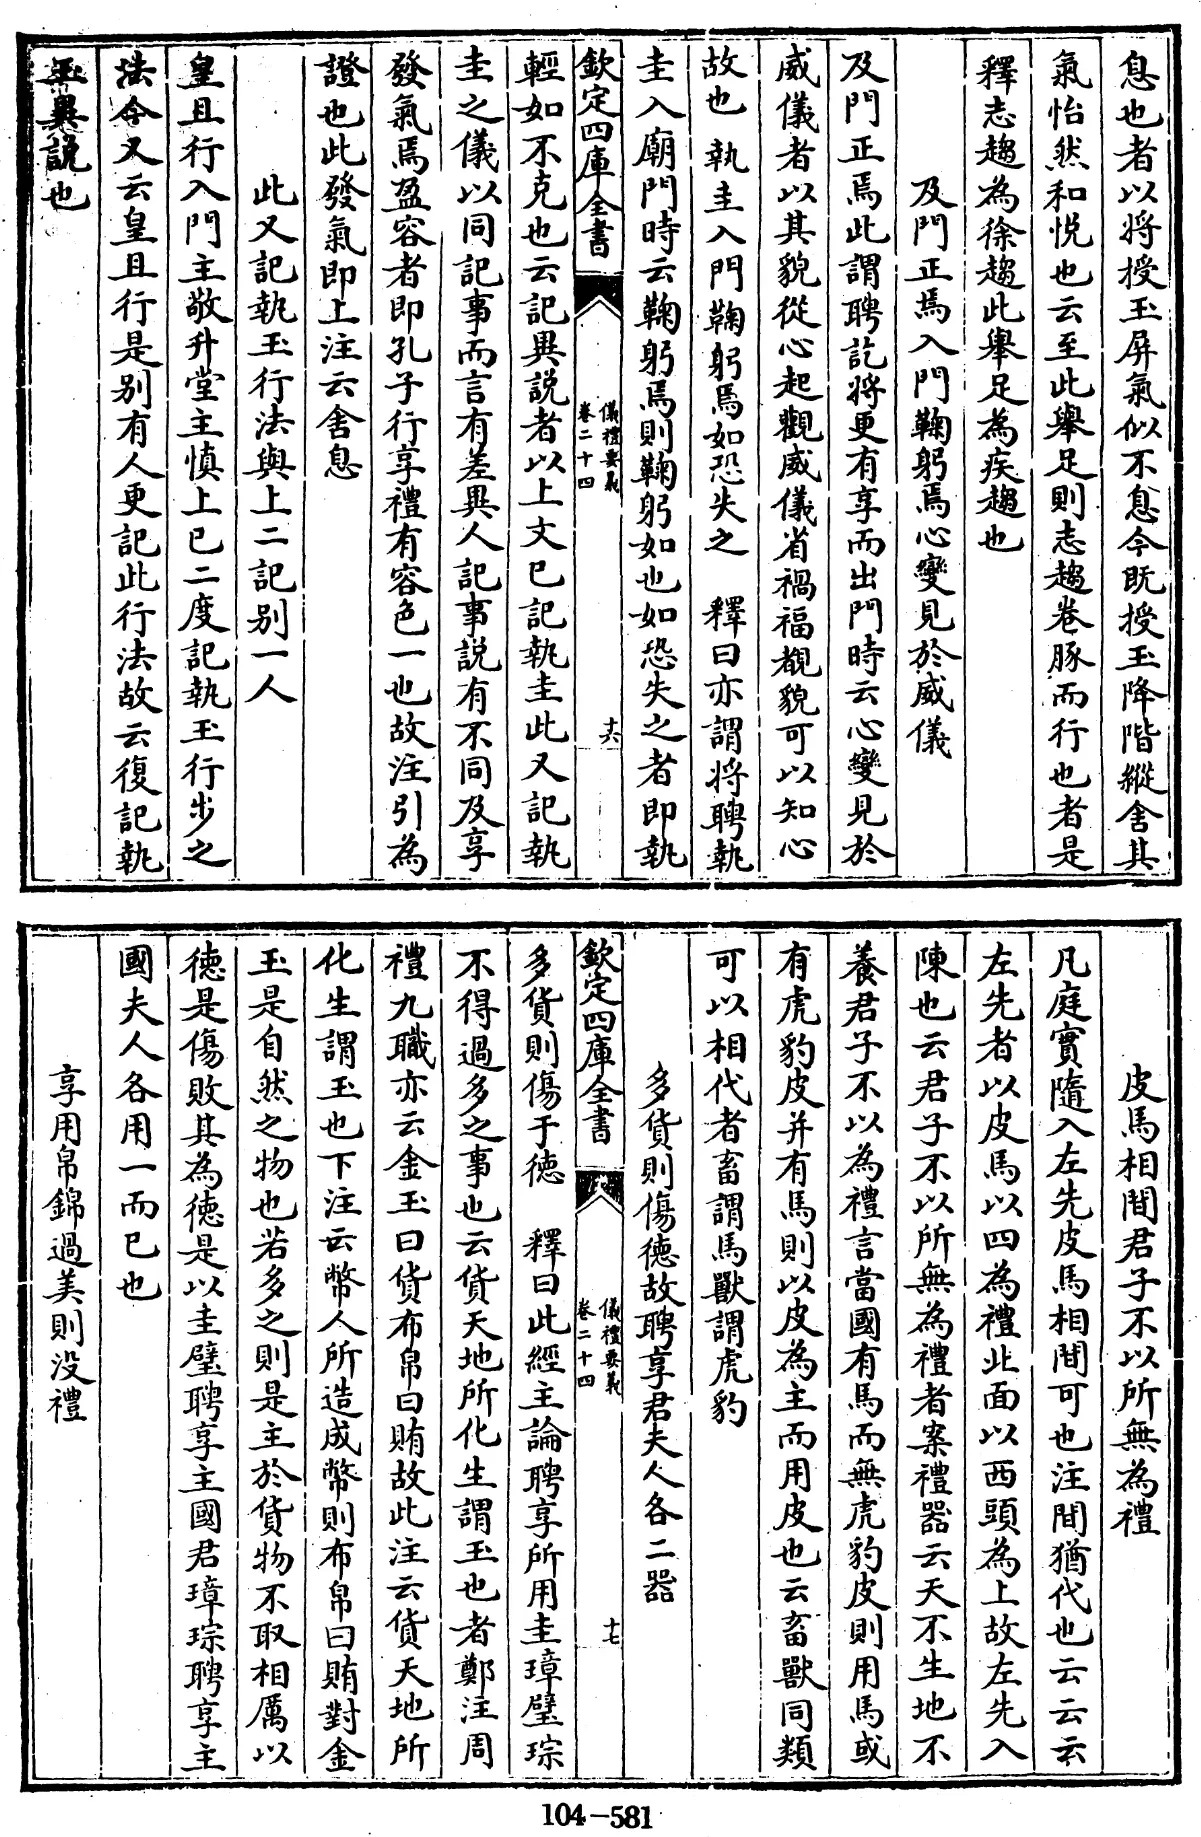 息也者以將授玉屏氣似不息今既授玉降階縱舍其
氣怡然和悦也云至此舉足則志趨卷豚而行也者是
釋志趨為徐趨此舉足為疾趨也
及門正焉入門鞠躬焉心變見於威儀
及門正焉此謂聘訖將更有享而出門時云心變見於
威儀者以其貌從心起觀威儀省禍福觀貌可以知心
故也 執圭入門鞠躬焉如恐失之 釋曰亦謂將聘執
圭入廟門時云鞠躬焉則鞠躬如也如恐失之者即執
欽定四庫全書
儀禮要義
卷二十四
十六
輕如不克也云記異説者以上文已記執圭此又記執
圭之儀以同記事而言有差異人記事説有不同及享
發氣焉盈容者即孔子行享禮有容色一也故注引為
證也此發氣即上注云舍息
此又記執玉行法與上二記别一人
皇且行入門主敬升堂主慎上已二度記執玉行步之
法今又云皇且行是别有人更記此行法故云復記執
玉異説也
皮馬相間君子不以所無為禮
凡庭實隨入左先皮馬相間可也注間猶代也云云云
左先者以皮馬以四為禮北面以西頭為上故左先入
陳也云君子不以所無為禮者案禮器云天不生地不
養君子不以為禮言當國有馬而無虎豹皮則用馬或
有虎豹皮并有馬則以皮為主而用皮也云畜獸同類
可以相代者畜謂馬獸謂虎豹
多貨則傷徳故聘享君夫人各二器
欽定四庫全書
儀禮要義
卷二十四
十七
多貨則傷于徳 釋曰此經主論聘享所用圭璋璧琮
不得過多之事也云貨天地所化生謂玉也者鄭注周
禮九職亦云金玉曰貨布帛曰賄故此注云貨天地所
化生謂玉也下注云幣人所造成幣則布帛曰賄對金
玉是自然之物也若多之則是主於貨物不取相厲以
徳是傷敗其為徳是以圭璧聘享主國君璋琮聘享主
國夫人各用一而已也
享用帛錦過美則没禮
104-581